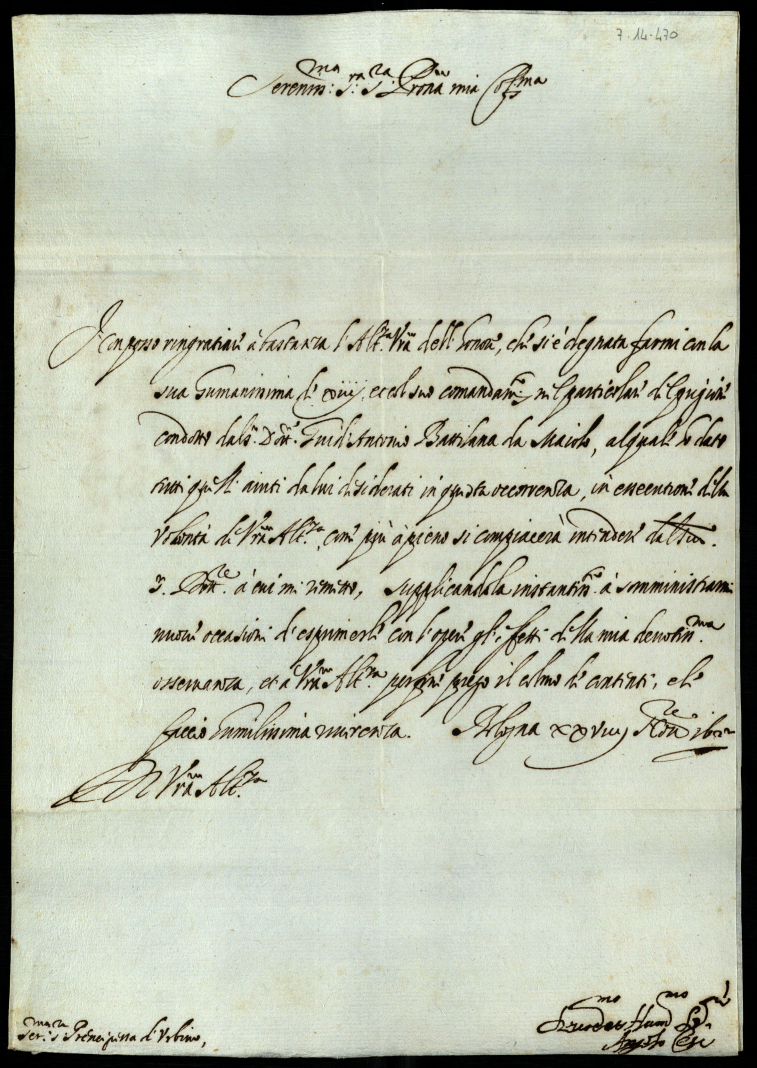 7-14-470
Seren.ma S.ra S.ra P.rona mia Col.ma
Non posso ringratiare à bastanza l'Alt.za V.ra dell'honore, che si è degnata farmi con la
sua humanissima de xiiij, et col suo comandam.to nel particolare di
condotto dal S.r Dott. Guid'Antonio Battilana da Maiolo, al quale ho dato
tutti quelli aiuti da lui desiderati in questa occorrenza, in essecutione della
volontà di V.ra Alt.za, come più à pieno si compiacerà intendere
S. Dott.re à cui mi rimetto, supplicandola instantem.te à somministrarmi
nuove occasioni d'esprimerle con l'opere gl'effetti della mia devotiss.ma
osservanza, et à V.ra Alt.za per fine prego il colmo de contenti, e le
faccio humilissima riverenza. Bologna xxviij
Di V.ra Alt.za
Ser.ma S.ra Principessa d'Urbino,
Hum.mo
Angelo